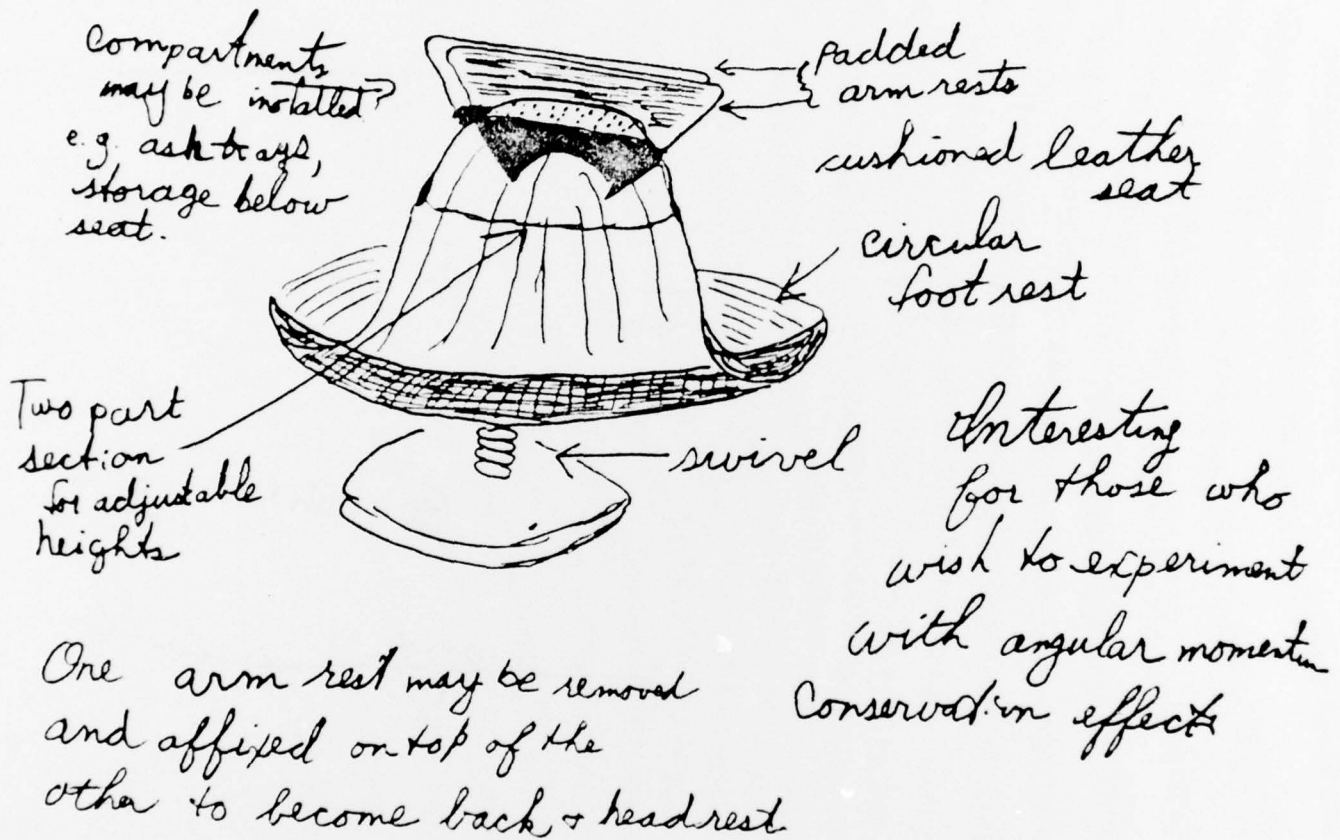 Compartments
may be installed?
e.g. ash trays,
storage below
seat.
Padded
arm rests
cushioned leather
seat
circular
foot rest
Two part
section
for adjustable
heights
swivel
Interesting
for those who
wish to experiment
with angular momentum
Conservation effects
One arm rest may be removed
and affixed on top of the
other to become back & head rest